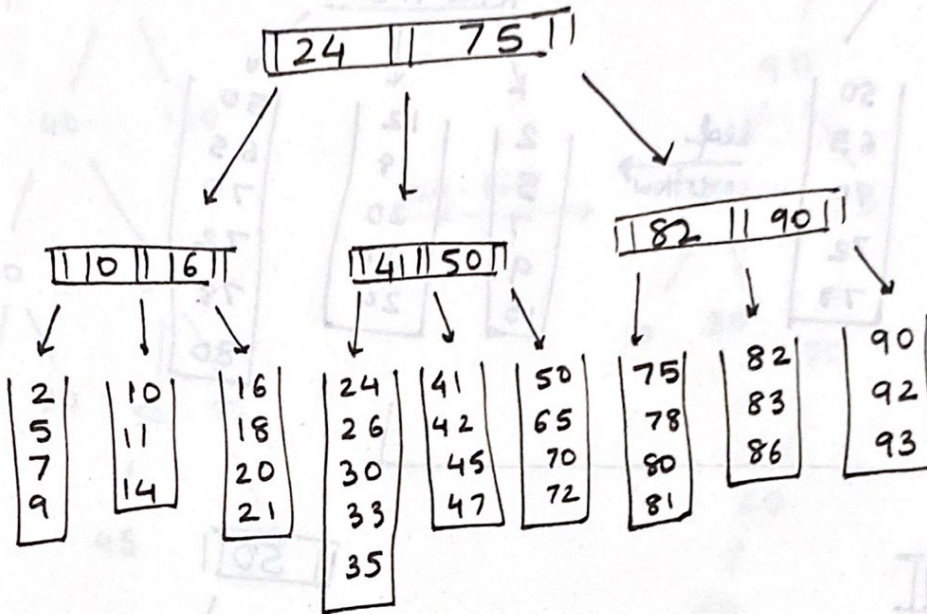 24 75
10 16
41 50
82 90
2
5
7
9
10
11
14
16
18
20
21
24
26
30
33
35
41
42
45
47
50
65
70
72
75
78
80
81
82
83
86
90
92
93
50